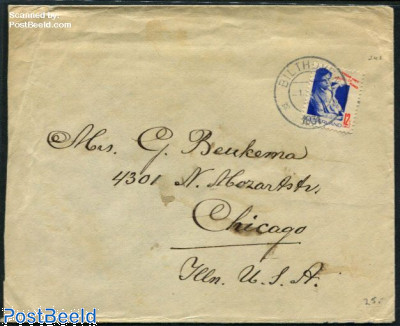 Scanned by
PostBeeld.com
BILTH
1931
Mrs. G. Beukema
4301 N. Mozartstr.
Chicago
Illn. U.S.A.
25.-
PostBeeld